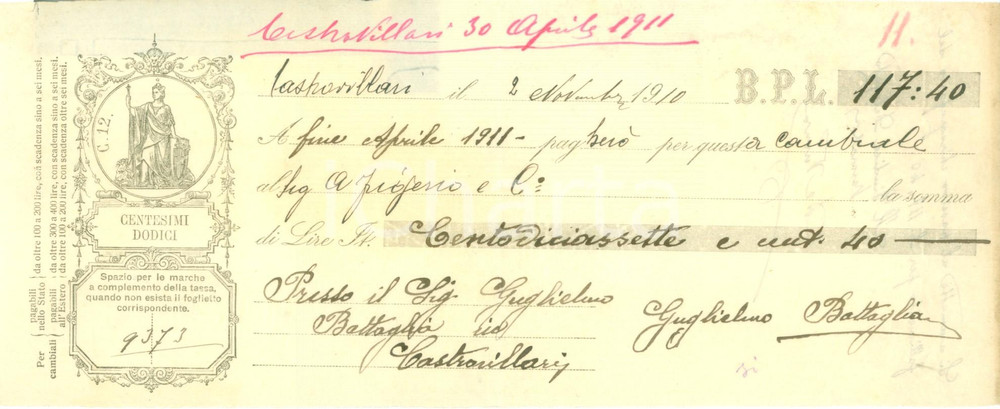 Castrovillari 30 Aprile 1911
11.
Castrovillari il 2 Novembre 1910 B.P.L. 117:40
A fine Aprile 1911 - pagherò per questa cambiale
al Sig A Frigerio e C.º la somma
di Lire It. Centodiciassette e cent. 40
Presso il Sig. Guglielmo
Battaglia
Castrovillari
Guglielmo Battaglia
C. 12.
CENTESIMI
DODICI
Spazio per le marche
a complemento della tassa,
quando non esista il foglietto
corrispondente.
9373
Per cambiali
pagabili nello Stato
da oltre 100 a 200 lire, con scadenza sino a sei mesi.
pagabili all'Estero
da oltre 300 a 400 lire, con scadenza sino a sei mesi.
da oltre 100 a 200 lire, con scadenza oltre sei mesi.